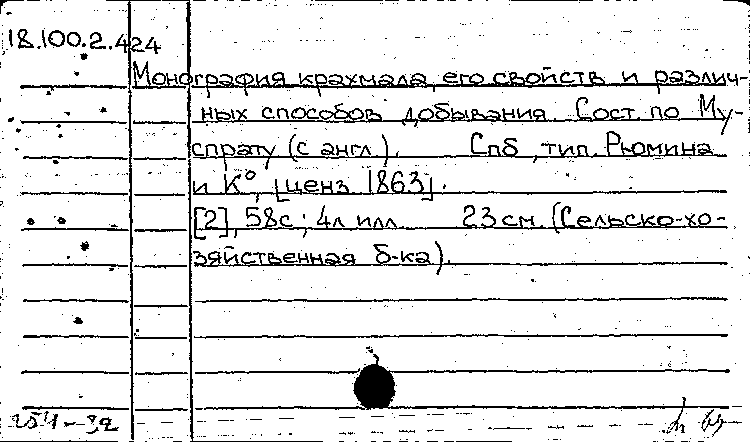 18.100.2.424
Монография крахмала, его свойств и различ-
ных способов добывания. Сост. по Му-
спрату (с англ.). Спб, тип. Рюмина
и К°, [ценз. 1863].
[2], 58с.; 4л илл. 23см. (Сельско-хо-
зяйственная б-ка).
254-92